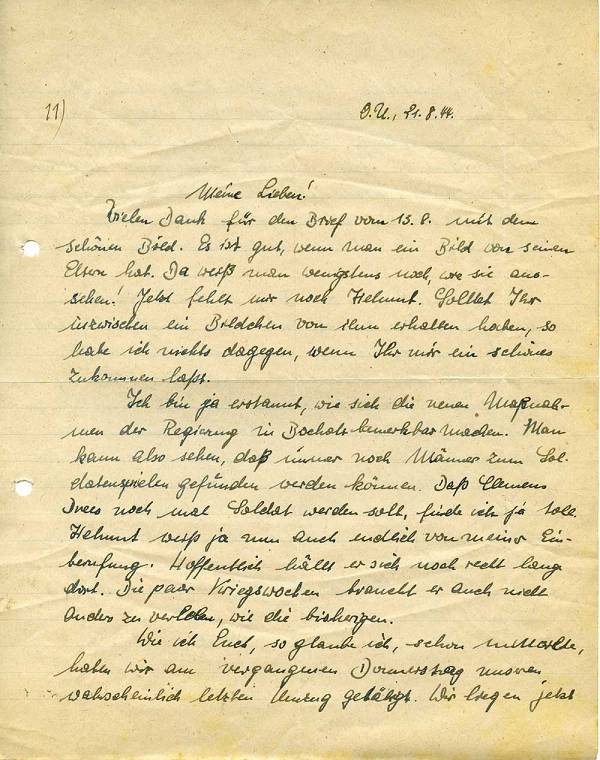 11)
O.U., 21.8.44.
Meine Lieben!
Vielen Dank für den Brief vom 13.8. mit dem
schönen Bild. Es ist gut, wenn man ein Bild von seinen
Eltern hat. Da weiß man wenigstens noch, wie sie aus-
sehen! Jetzt fehlt mir noch Helmut. Solltet Ihr
inzwischen ein Bildchen von ihm erhalten haben, so
habe ich nichts dagegen, wenn Ihr mir ein schönes
zukommen laßt.
Ich bin ja erstaunt, wie sich die neuen Maßnah-
men der Regierung in Bocholt bemerkbar machen. Man
kann also sehen, daß immer noch Männer zum Sol-
datenspielen gefunden werden können. Daß Clemens
Drees noch mal Soldat werden soll, finde ich ja toll.
Helmut weiß ja nun auch endlich von meiner Ein-
berufung. Hoffentlich hält er sich noch recht lang
dort. Die paar Kriegswochen braucht er auch nicht
anders zu verleben, wie die bisherigen.
Wie ich Euch, so glaube ich, schon mitteilte,
haben wir am vergangenen Donnerstag unseren
wahrscheinlich letzten Umzug getätigt. Wir liegen jetzt